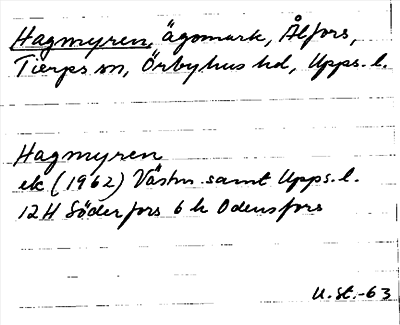 Hagmyren, ägomark, Ålfors,
Tierps sn, Örbyhus hd, Upps. l.
Hagmyren
ek (1962) Västm. samt Upps. l.
12H Söderfors 6 h Odensfors
U. St. -63